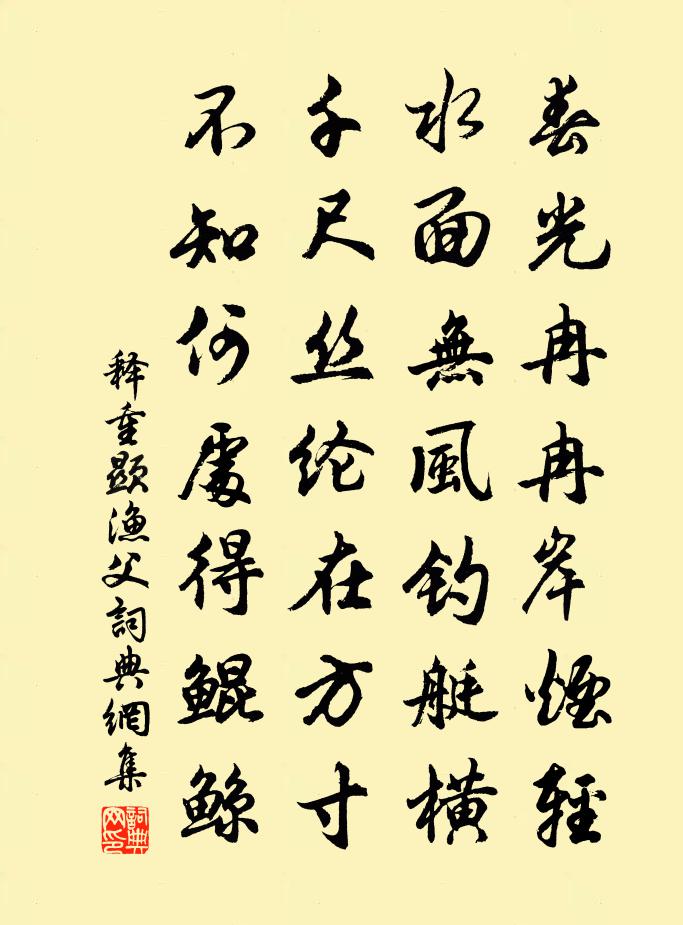 春光冉冉岸煙輕
水面無風釣艇橫
千尺丝纶在方寸
不知何處得鯤鯨
释重顯漁父詞典網集
詞典網印